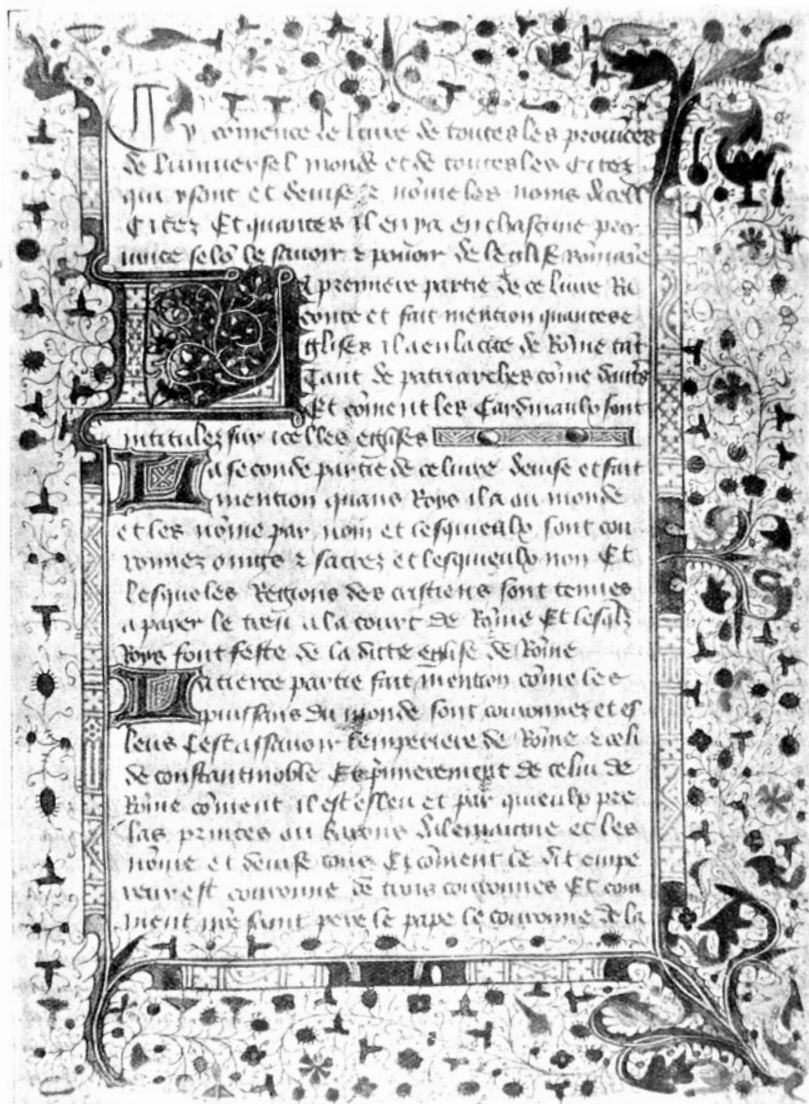 Cy cōmence le liure de toutes les prouīces
de luniuersel monde et de toutes les Citez
qui y sont et deuise ⁊ nōme les noms dicell
Citez Et quantes il en ya en chascune pro
uince selō le sauoir ⁊ pouoir de leglise Rōmaine
La premiere partie de ce liure Ra
conte et fait mention quantes e
glises il a en la cite de Rōme tāt
Tant de patriarches cōme dautˢ
Et cōment les Cardinaulx sont
intitulez sur icelles eglises
La seconde partie de ce liure deuise et fait
mention quans Roys il a au monde
et les nōme par nom et lesquieulx sont cou
ronnez oingˢ ⁊ sacrez et lesquieulx non Et
lesqueles Regions des cristiens sont tenues
a paier le treu a la court de Rōme Et lesqlz
Roys font feste de la ditte eglise de Rōme
La tierce partie fait mention cōme les
puissans du monde sont couronnez et es
leus Cest assauoir lemperiere de Rōme ⁊ celi
de constantinoble Et p̄mierement de celui de
Rōme cōment il est esleu et par quieulx pre
las princes ou barons dalemaigne et les
nōme et deuise tous Et cōment le dit empe
reur est couronne de trois couronnes Et com
ment nr̄e saint pere le pape le couronne de la